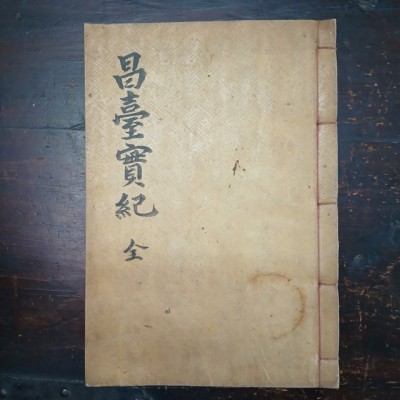 昌臺實紀
全